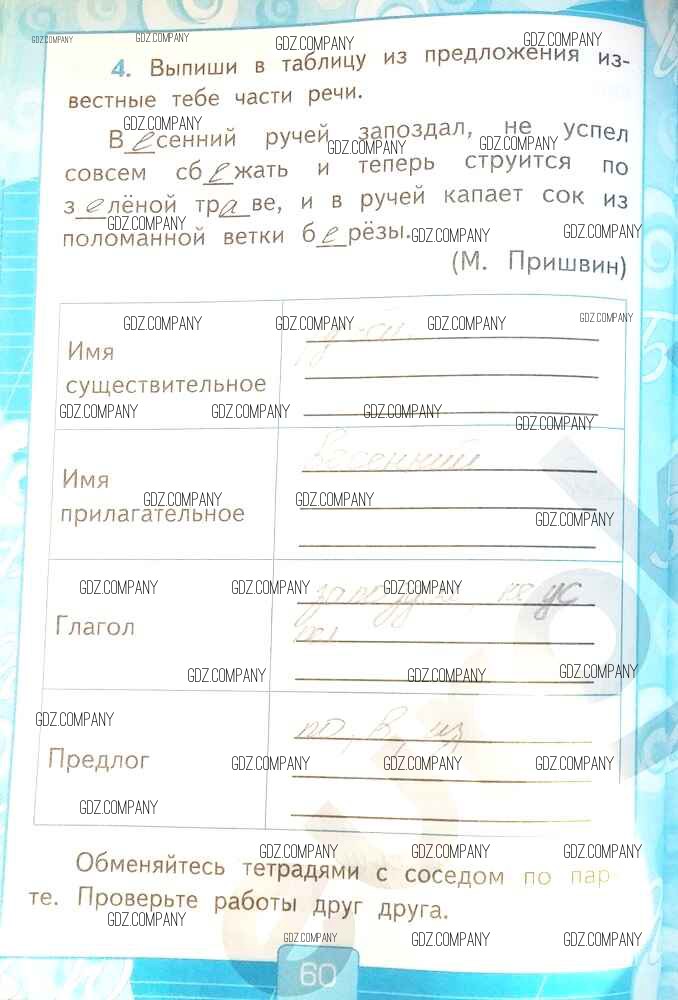 4. Выпиши в таблицу из предложения из-
вестные тебе части речи.
Весенний ручей запоздал, не успел
совсем сбежать и теперь струится по
зелёной траве, и в ручей капает сок из
поломанной ветки берёзы.
(М. Пришвин)
Имя
существительное
Имя
прилагательное
Весенний
Глагол
не ус
пел
Предлог
по, в, из
Обменяйтесь тетрадями с соседом по пар-
те. Проверьте работы друг друга.
60
GDZ.COMPANY